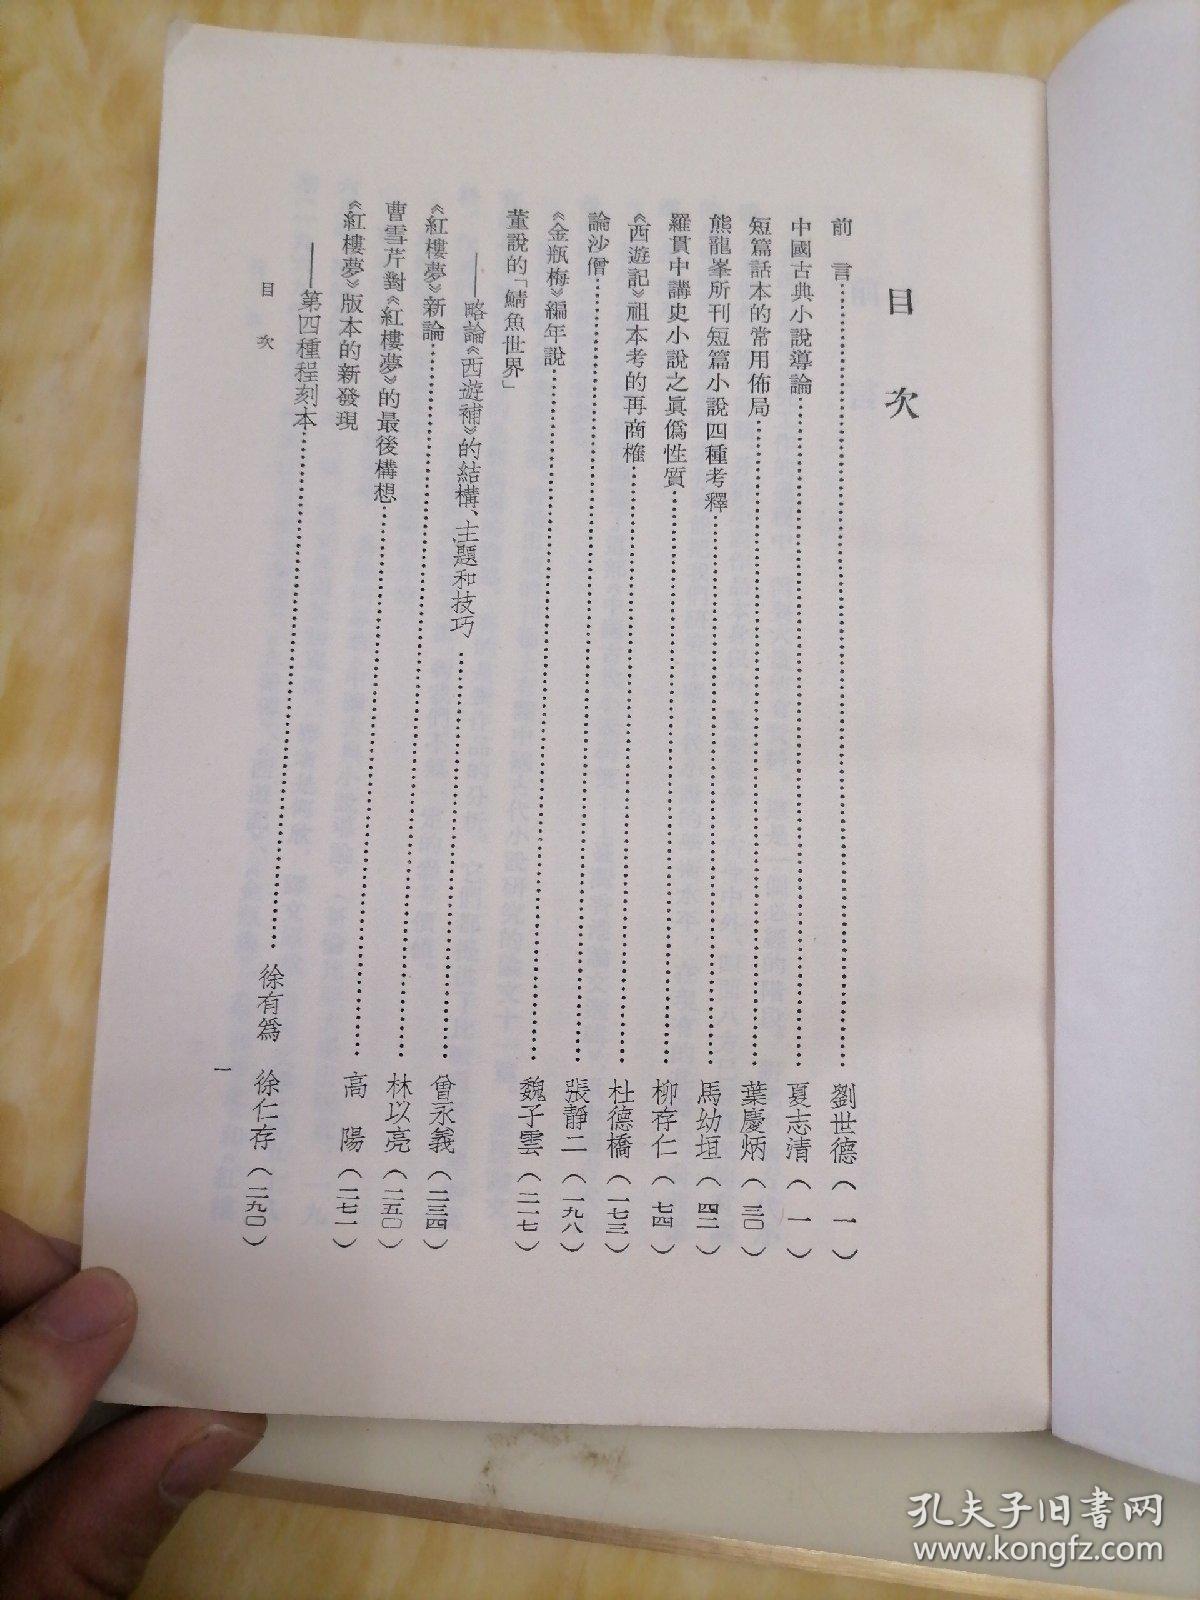 目次
前言……劉世德（一）
中國古典小說導論……夏志清（一）
短篇話本的常用佈局……葉慶炳（三〇）
熊龍峯所刊短篇小說四種考釋……馬幼垣（四二）
羅貫中講史小說之眞僞性質……柳存仁（七四）
《西遊記》祖本考的再商榷……杜德橋（一七三）
論沙僧……張靜二（一九八）
《金瓶梅》編年說……魏子雲（二一七）
董說的「鯖魚世界」
——略論《西遊補》的結構、主題和技巧……曾永義（二三四）
《紅樓夢》新論……林以亮（二五〇）
曹雪芹對《紅樓夢》的最後構想……高陽（二七一）
《紅樓夢》版本的新發現
——第四種程刻本……徐有爲 徐仁存（二九〇）
目次
一
孔夫子旧书网
www.kongfz.com